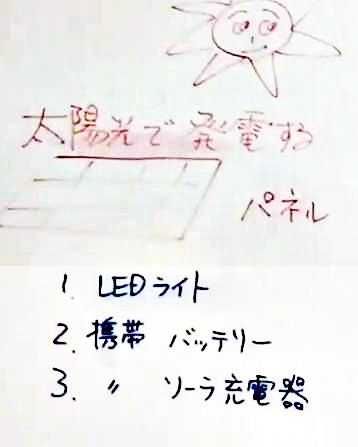 太陽光で発電する
パネル
1. LEDライト
2. 携帯 バッテリー
3. 〃 ソーラ充電器